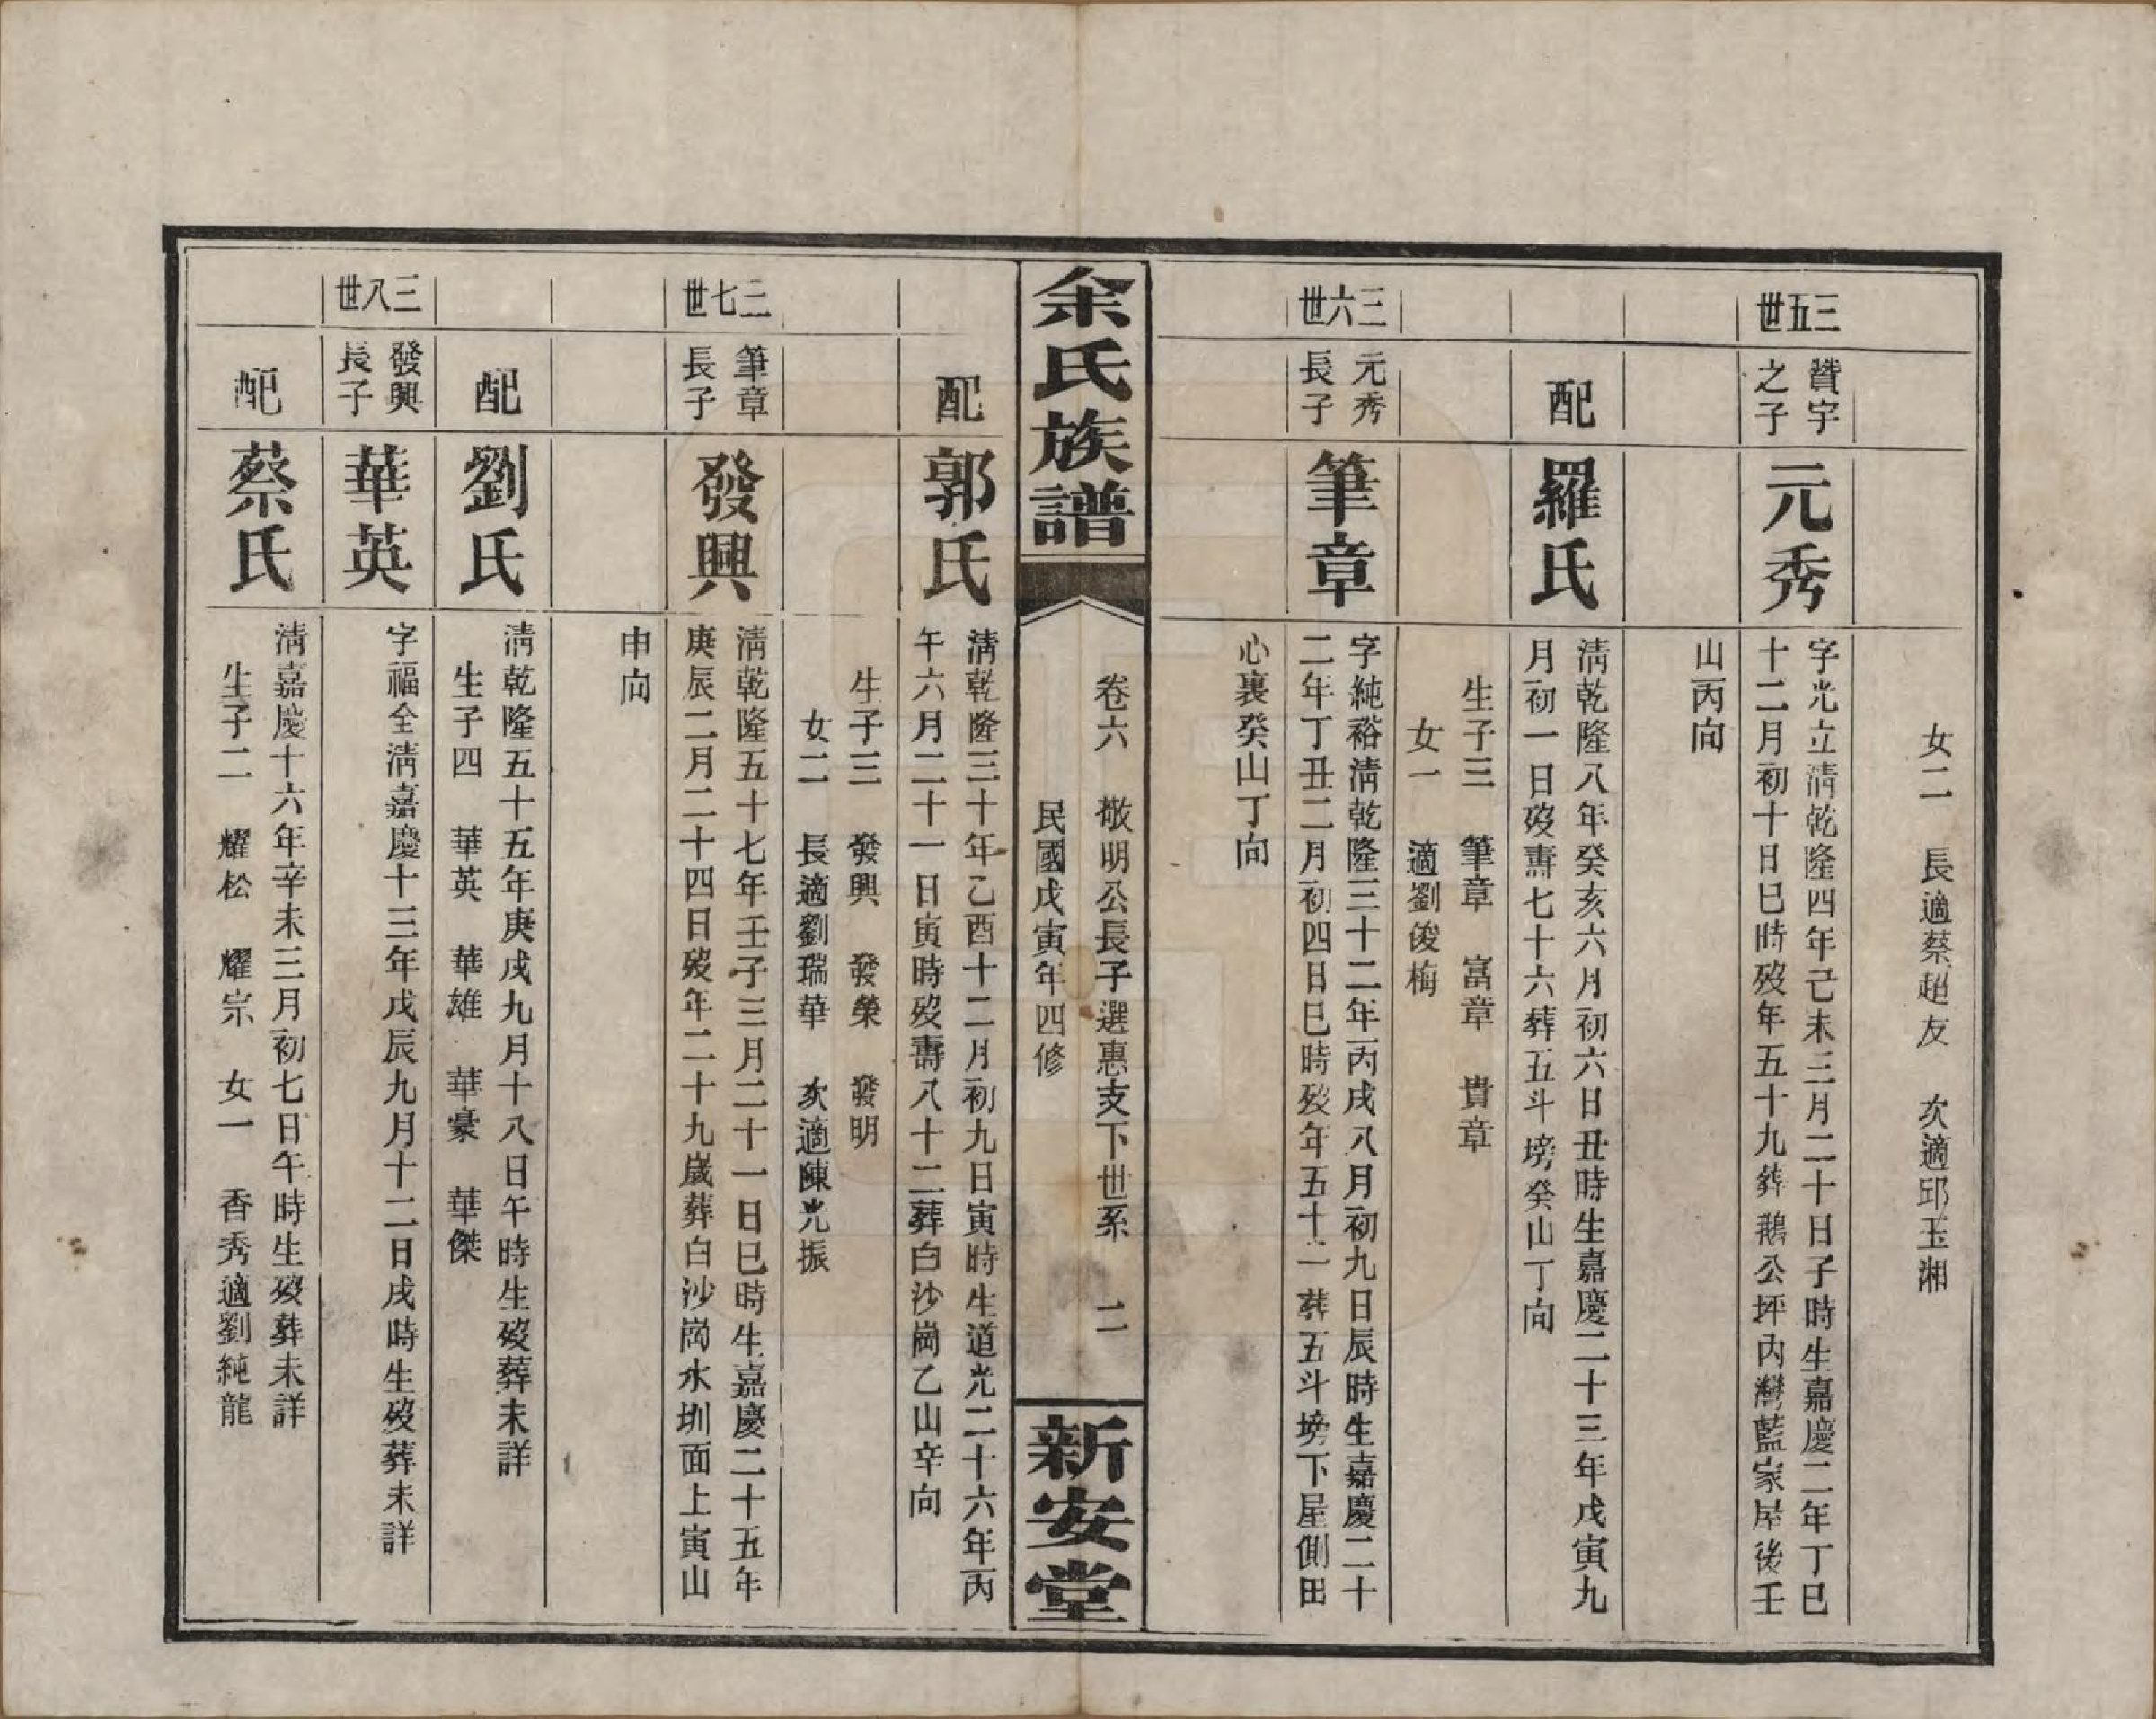 女二　長適蔡超友　次適邱玉湘
三五世
贊宇
之子
元秀
字光立淸乾隆四年己未三月二十日子時生嘉慶二年丁巳
十二月初十日巳時歿年五十九葬鵝公坪內灣藍家屋後壬
山丙向
配
羅氏
淸乾隆八年癸亥六月初六日丑時生嘉慶二十三年戊寅九
月初一日歿壽七十六葬五斗塝癸山丁向
生子三　筆章　富章　貴章
女一　適劉俊梅
三六世
元秀
長子
筆章
字純裕淸乾隆三十二年丙戌八月初九日辰時生嘉慶二十
二年丁丑二月初四日巳時歿年五十一葬五斗塝下屋側田
心裏癸山丁向
余氏族譜
卷六　敬明公長子選惠支下世系　二
民國戊寅年四修
新安堂
配
郭氏
淸乾隆三十年乙酉十二月初九日寅時生道光二十六年丙
午六月二十一日寅時歿壽八十二葬白沙崗乙山辛向
生子三　發興　發榮　發明
女二　長適劉瑞華　次適陳光振
三七世
筆章
長子
發興
淸乾隆五十七年壬子三月二十一日巳時生嘉慶二十五年
庚辰二月二十四日歿年二十九歲葬白沙崗水圳面上寅山
申向
配
劉氏
淸乾隆五十五年庚戌九月十八日午時生歿葬未詳
生子四　華英　華雄　華豪　華傑
三八世
發興
長子
華英
字福全淸嘉慶十三年戊辰九月十二日戌時生歿葬未詳
配
蔡氏
淸嘉慶十六年辛未三月初七日午時生歿葬未詳
生子二　耀松　耀宗　女一　香秀適劉純龍